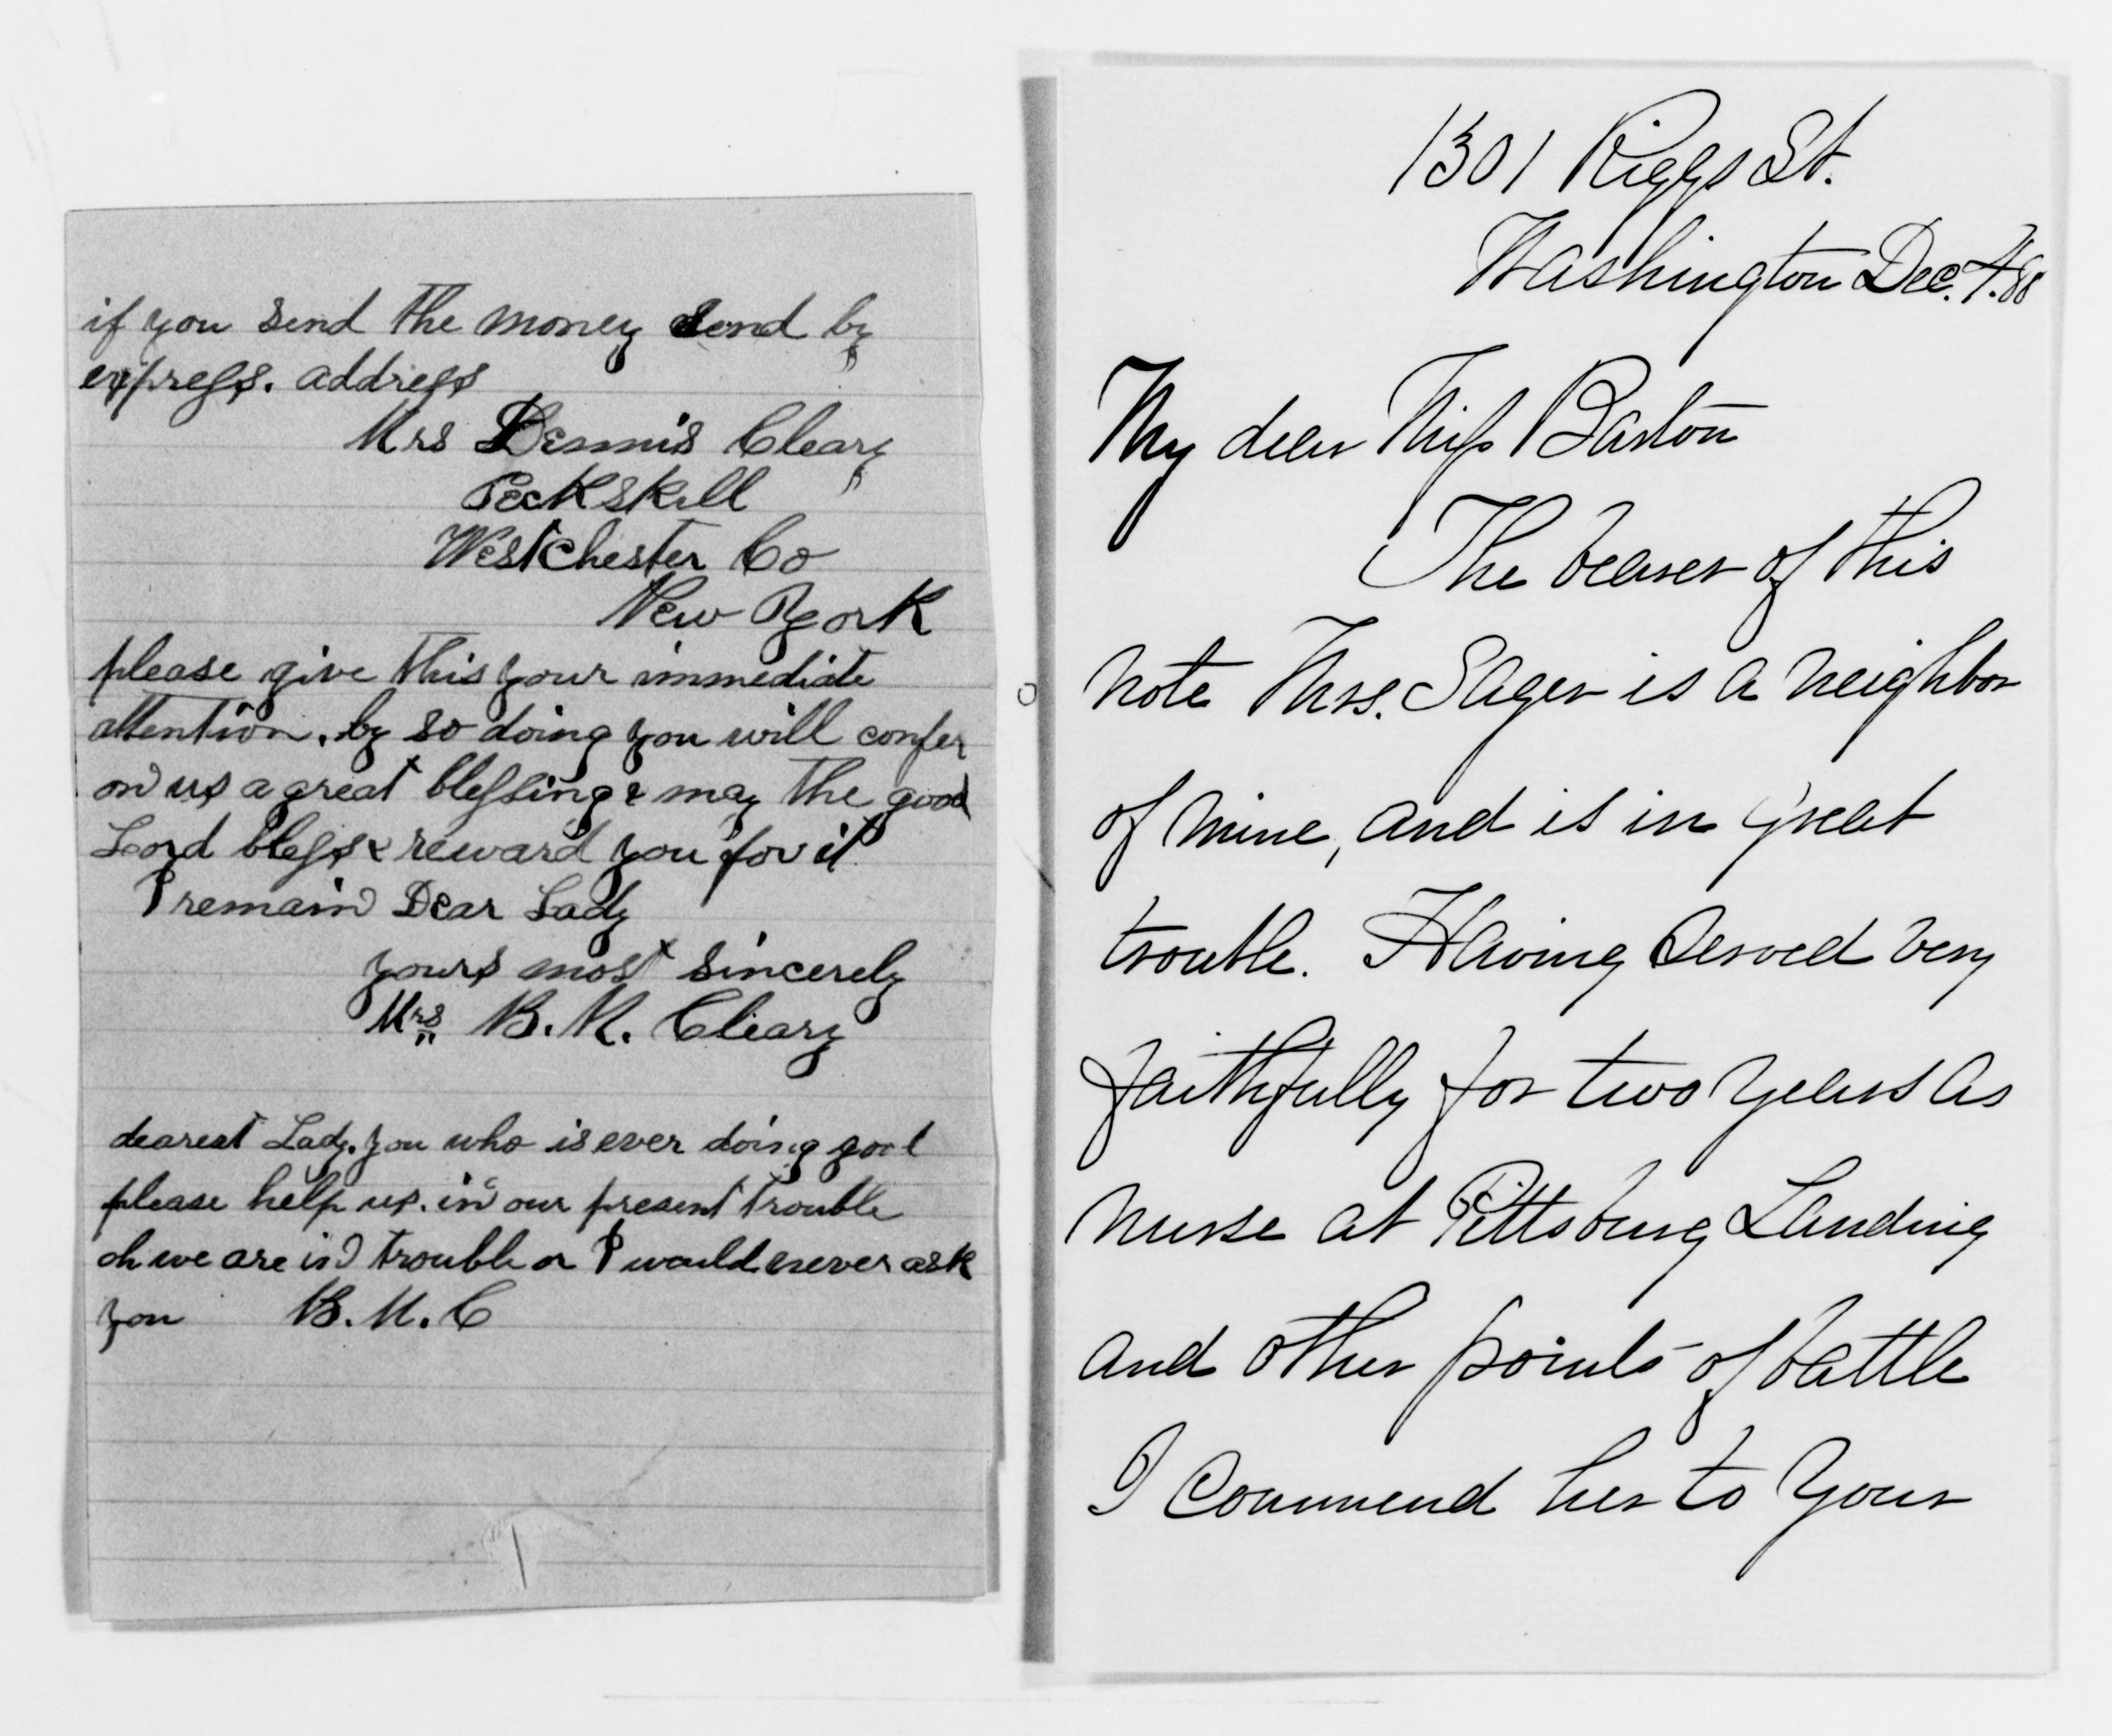 if you send the money send by
express. address
Mrs Dennis Cleary
Peekskill
Westchester Co
New York
please give this your immediate
attention. by so doing you will confer
on us a great blessing & may the good
Lord bless & reward you for it
I remain Dear Lady
yours most sincerely
Mrs B. M. Cleary
dearest Lady. you who is ever doing good
please help us. in our present trouble
oh we are in trouble or I would never ask
you B. M. C
1301 Riggs St.
Washington Dec. 7. 88
My dear Miss Barton
The bearer of this
note Mrs. Sager is a neighbor
of mine, and is in great
trouble. Having served very
faithfully for two years as
nurse at Pittsburg Landing
and other points of battle
I commend her to your